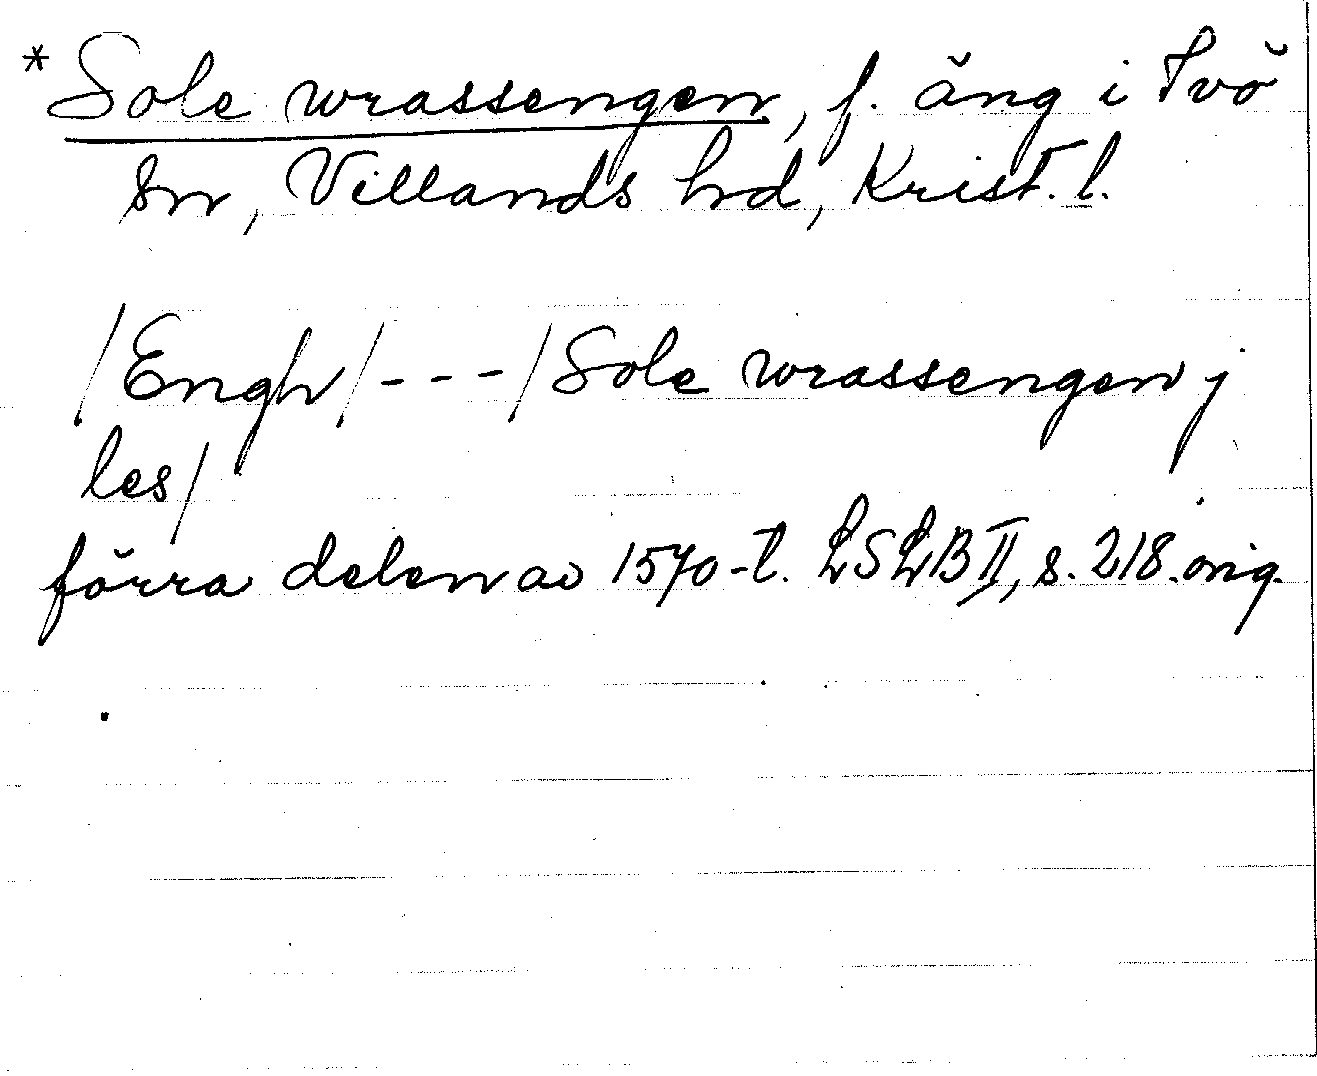 * Sole wrassengen, f. äng i Ivö
sn, Villands hd, Krist. l.
/Engh/---/Sole wrassengen j
les/
förra delen av 1570-t. LSLB II, s. 218. orig.